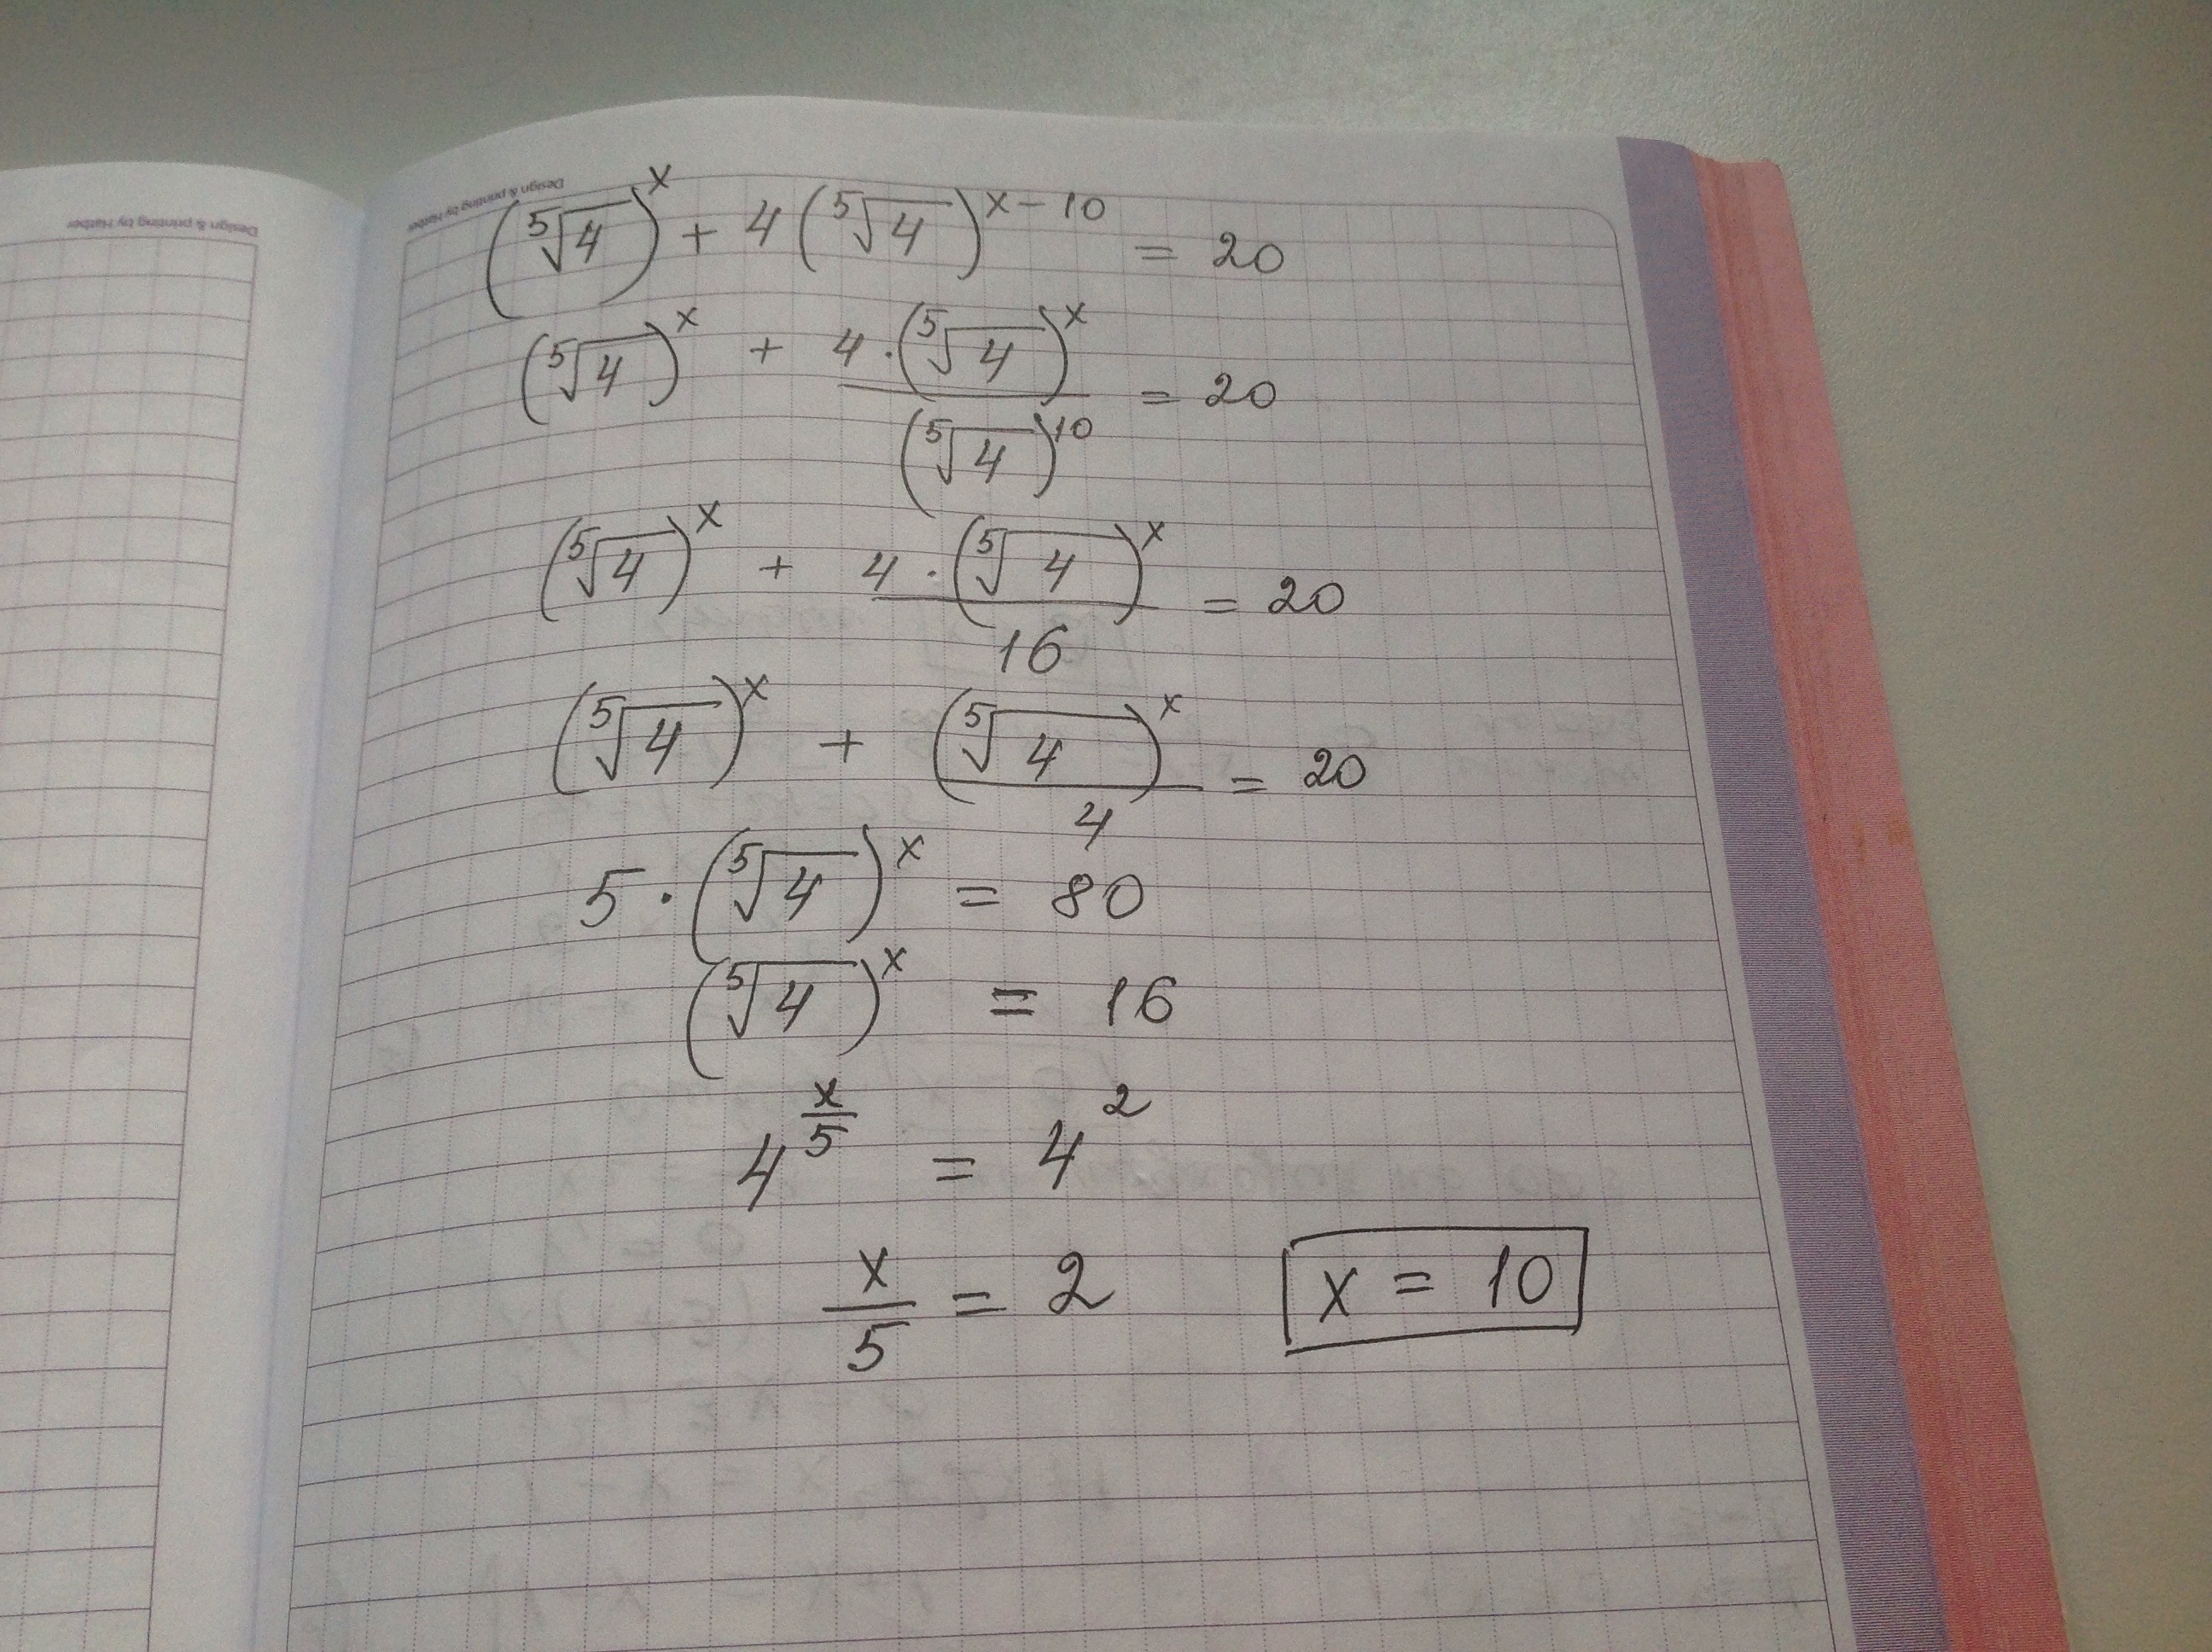 Design & printing by Hatber
Design & printing by Hatber
(⁵√4)^x + 4(⁵√4)^(x-10) = 20
(⁵√4)^x + 4·(⁵√4)^x / (⁵√4)^10 = 20
(⁵√4)^x + 4·(⁵√4)^x / 16 = 20
(⁵√4)^x + (⁵√4)^x / 4 = 20
5·(⁵√4)^x = 80
(⁵√4)^x = 16
4^(x/5) = 4^2
x/5 = 2 x = 10